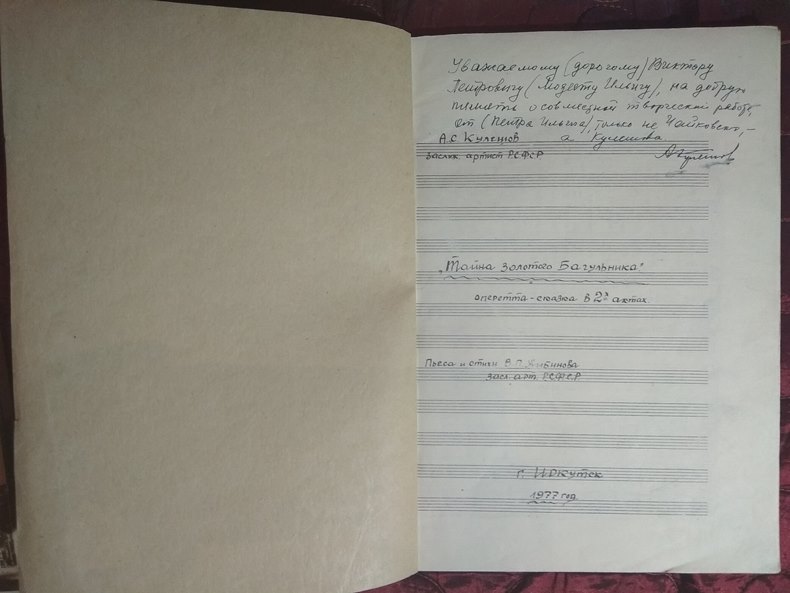 Уважаемому (дорогому) Виктору
Петровичу (Модесту Ильичу), на добрую
память о совместной творческой работе,
от (Петра Ильича), только не Чайковского, –
а Кулешова.
А.С Кулешов
заслуж. артист РСФСР
„Тайна золотого Багульника"
оперетта-сказка в 2х актах.
Пьеса и стихи В.П.
засл. арт. РСФСР
г. Иркутск
1977 год